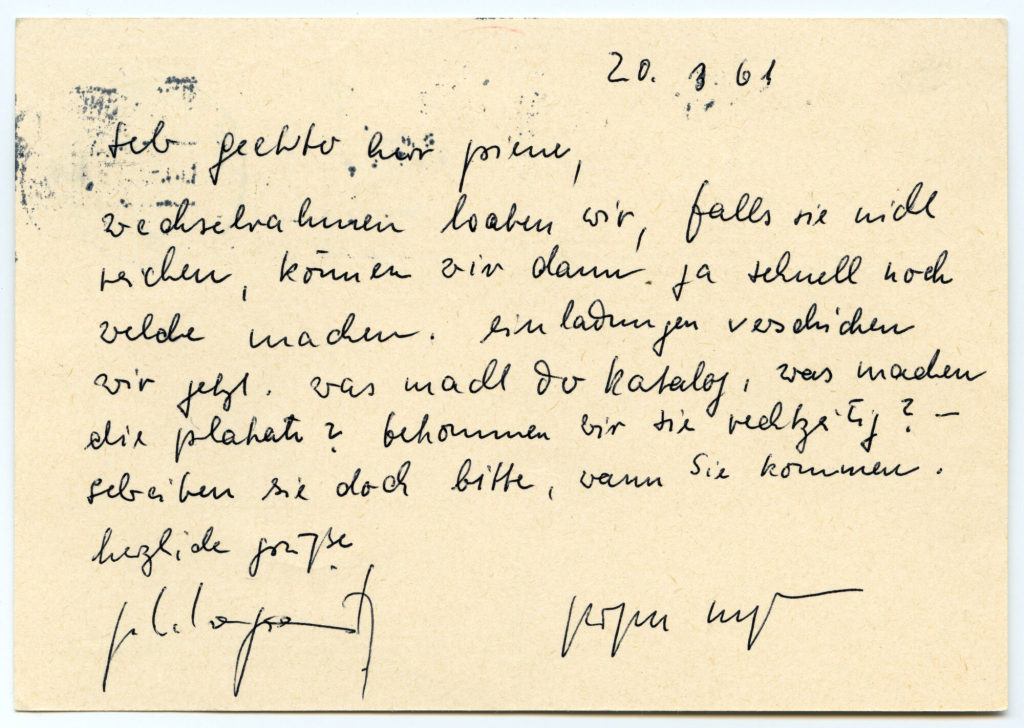 20. 1. 61
sehr geehrter herr piene,
wechselrahmen haben wir, falls sie nicht
reichen, können wir dann ja schnell noch
welche machen. einladungen verschicken
wir jetzt. was macht der katalog, was machen
die plakate? bekommen wir sie rechtzeitig? –
schreiben sie doch bitte, wann Sie kommen.
herzliche grüße